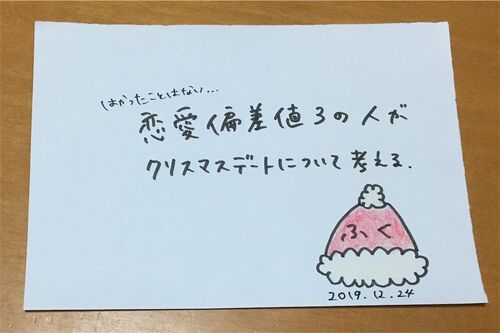 はかったことはない...
恋愛偏差値3の人が
クリスマスデートについて考える.
ふく
2019.12.24